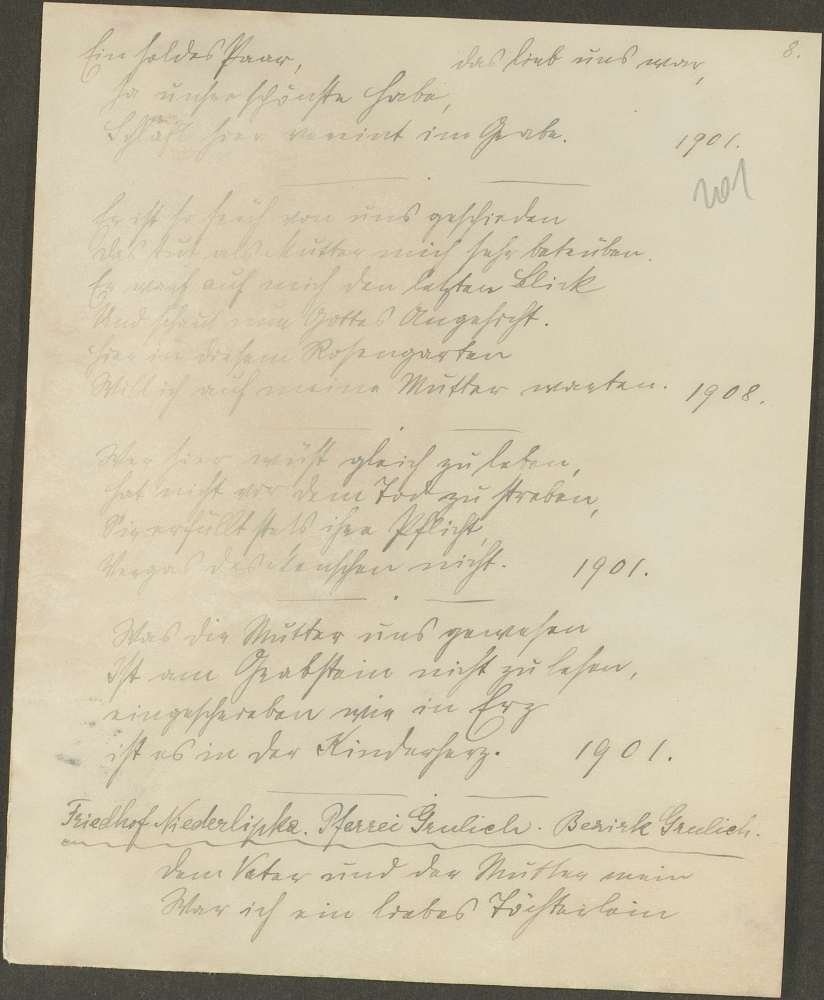 8.
Ein holdes Paar, das lieb uns war,
Ja unsre schönste Habe,
Schläft hier vereint im Grabe. 1901.
201
Er ist so früh von uns geschieden
Das tut als Mutter mich sehr betrüben.
Er warf auf mich den letzten Blick
Und schaut nun Gottes Angesicht.
Hier in diesem Rosengarten
Will ich auf meine Mutter warten. 1908.
Wer hier weiß gleich zu leben,
hat nicht vor dem Tod zu streben,
Sie erfüllt stets ihre Pflicht,
Vergas des Menschen nicht. 1901.
Was die Mutter uns gewesen
Ist am Grabstein nicht zu lesen,
eingeschrieben wie in Erz
ist es in der Kinderherz. 1901.
Friedhof Niederlipka. Pfarrei Grulich. Bezirk Grulich.
Dem Vater und der Mutter mein
War ich ein liebes Töchterlein